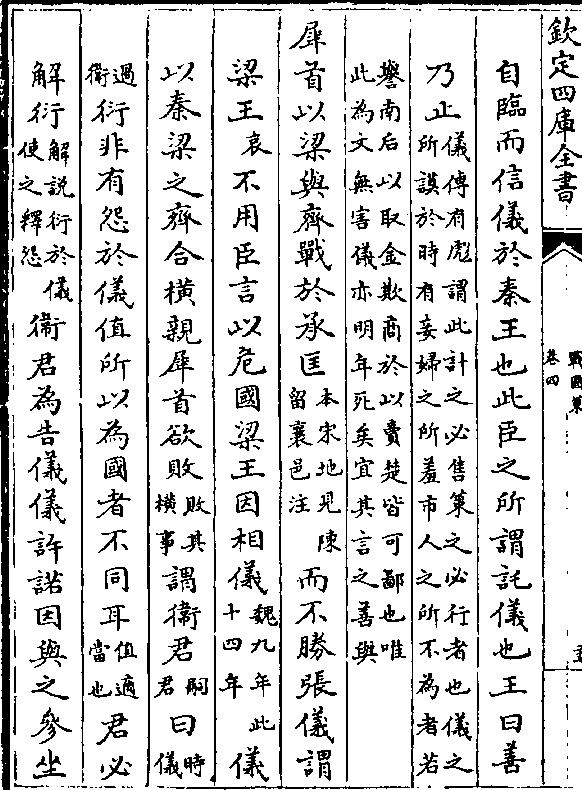 欽定四庫全書
戰國策
卷四
自臨而信儀於秦王也此臣之所謂託儀也王曰善
乃止儀傳有彪謂此計之必售策之必行者也儀之所謨於時有妾婦之所羞市人之所不為者若
譽南后以取金欺商於以賣楚皆可鄙也唯此為文無害儀亦明年死矣宜其言之善與
犀首以梁與齊戰於承匡本宋地見陳留襄邑注而不勝張儀謂
梁王哀不用臣言以危國梁王因相儀魏九年此十四年儀
以秦梁之齊合橫親犀首欲敗敗其橫事謂衛君嗣君曰時儀
過衛衍非有怨於儀值所以為國者不同耳值適當也君必
解衍解說衍於儀使之釋怨衛君為告儀儀許諾因與之參坐